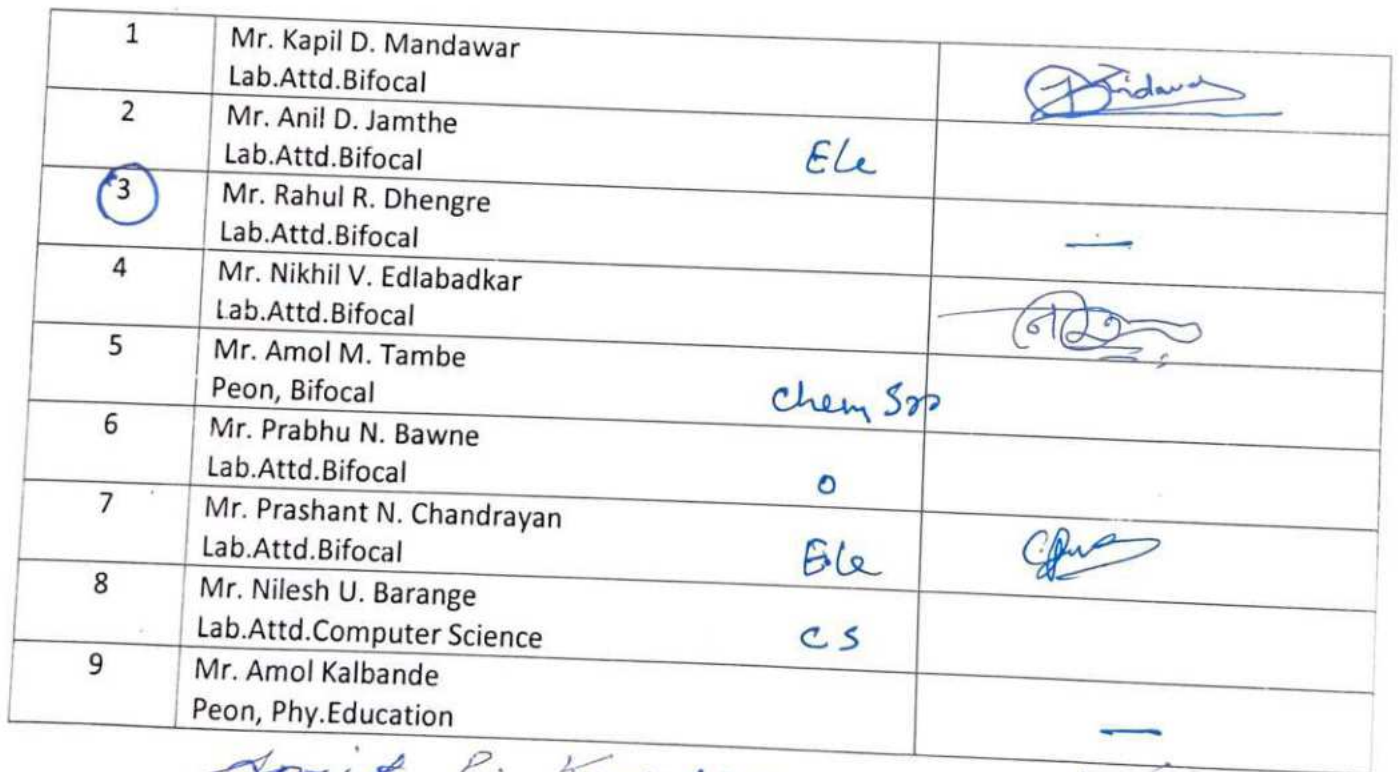 1
Mr. Kapil D. Mandawar
Lab.Attd.Bifocal
2
Mr. Anil D. Jamthe
Lab.Attd.Bifocal
Ele
3
Mr. Rahul R. Dhengre
Lab.Attd.Bifocal
—
4
Mr. Nikhil V. Edlabadkar
Lab.Attd.Bifocal
5
Mr. Amol M. Tambe
Peon, Bifocal
Chem
6
Mr. Prabhu N. Bawne
Lab.Attd.Bifocal
O
7
Mr. Prashant N. Chandrayan
Lab.Attd.Bifocal
Ele
8
Mr. Nilesh U. Barange
Lab.Attd.Computer Science
CS
9
Mr. Amol Kalbande
Peon, Phy.Education
—